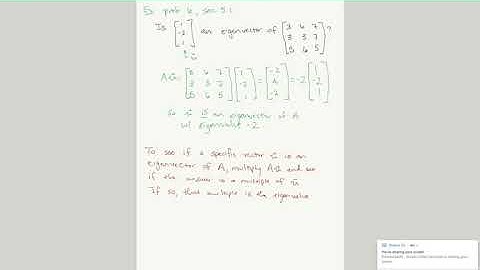 Ex prob 6, sec 5.1
Is [1 -2 1] an eigenvector of [3 6 7 3 3 7 5 6 5]?
Au = [3 6 7 3 3 7 5 6 5] [1 -2 1] = [-2 4 -2] = -2 [1 -2 1]
so u is an eigenvector of A
w/ eigenvalue -2
To see if a specific vector u is an
eigenvector of A, multiply Au and see
if the answer is a multiple of u
If so, that multiple is the eigenvalue